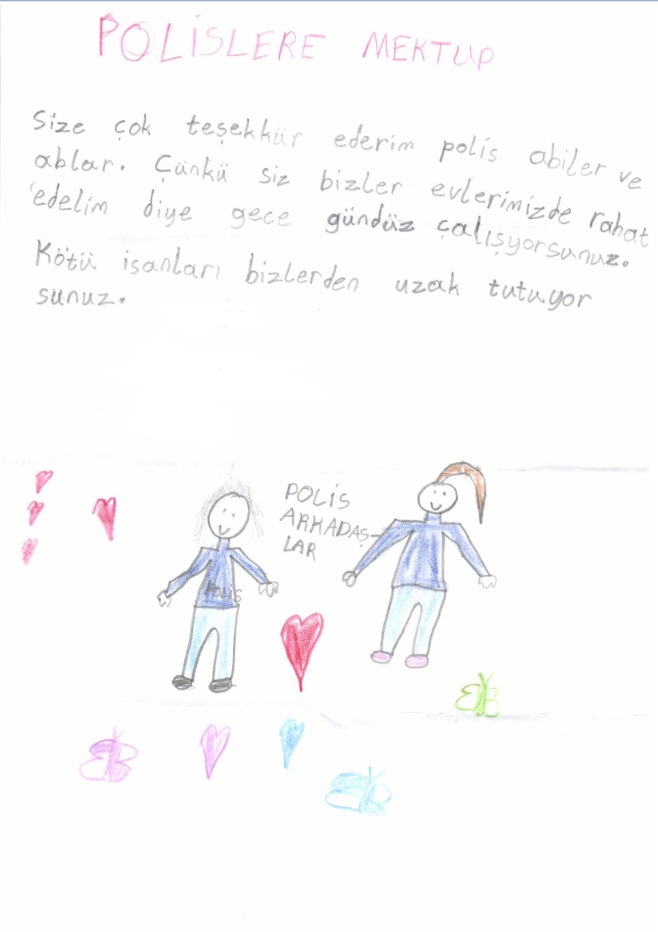 POLİSLERE MEKTUP
Size çok teşekkür ederim polis abiler ve
ablar. Çünkü siz bizler evlerimizde rahat
edelim diye gece gündüz çalışyorsunuz.
Kötü isanları bizlerden uzak tutuyor
sunuz.
POLİS
ARKADAŞ
LAR
POLİS